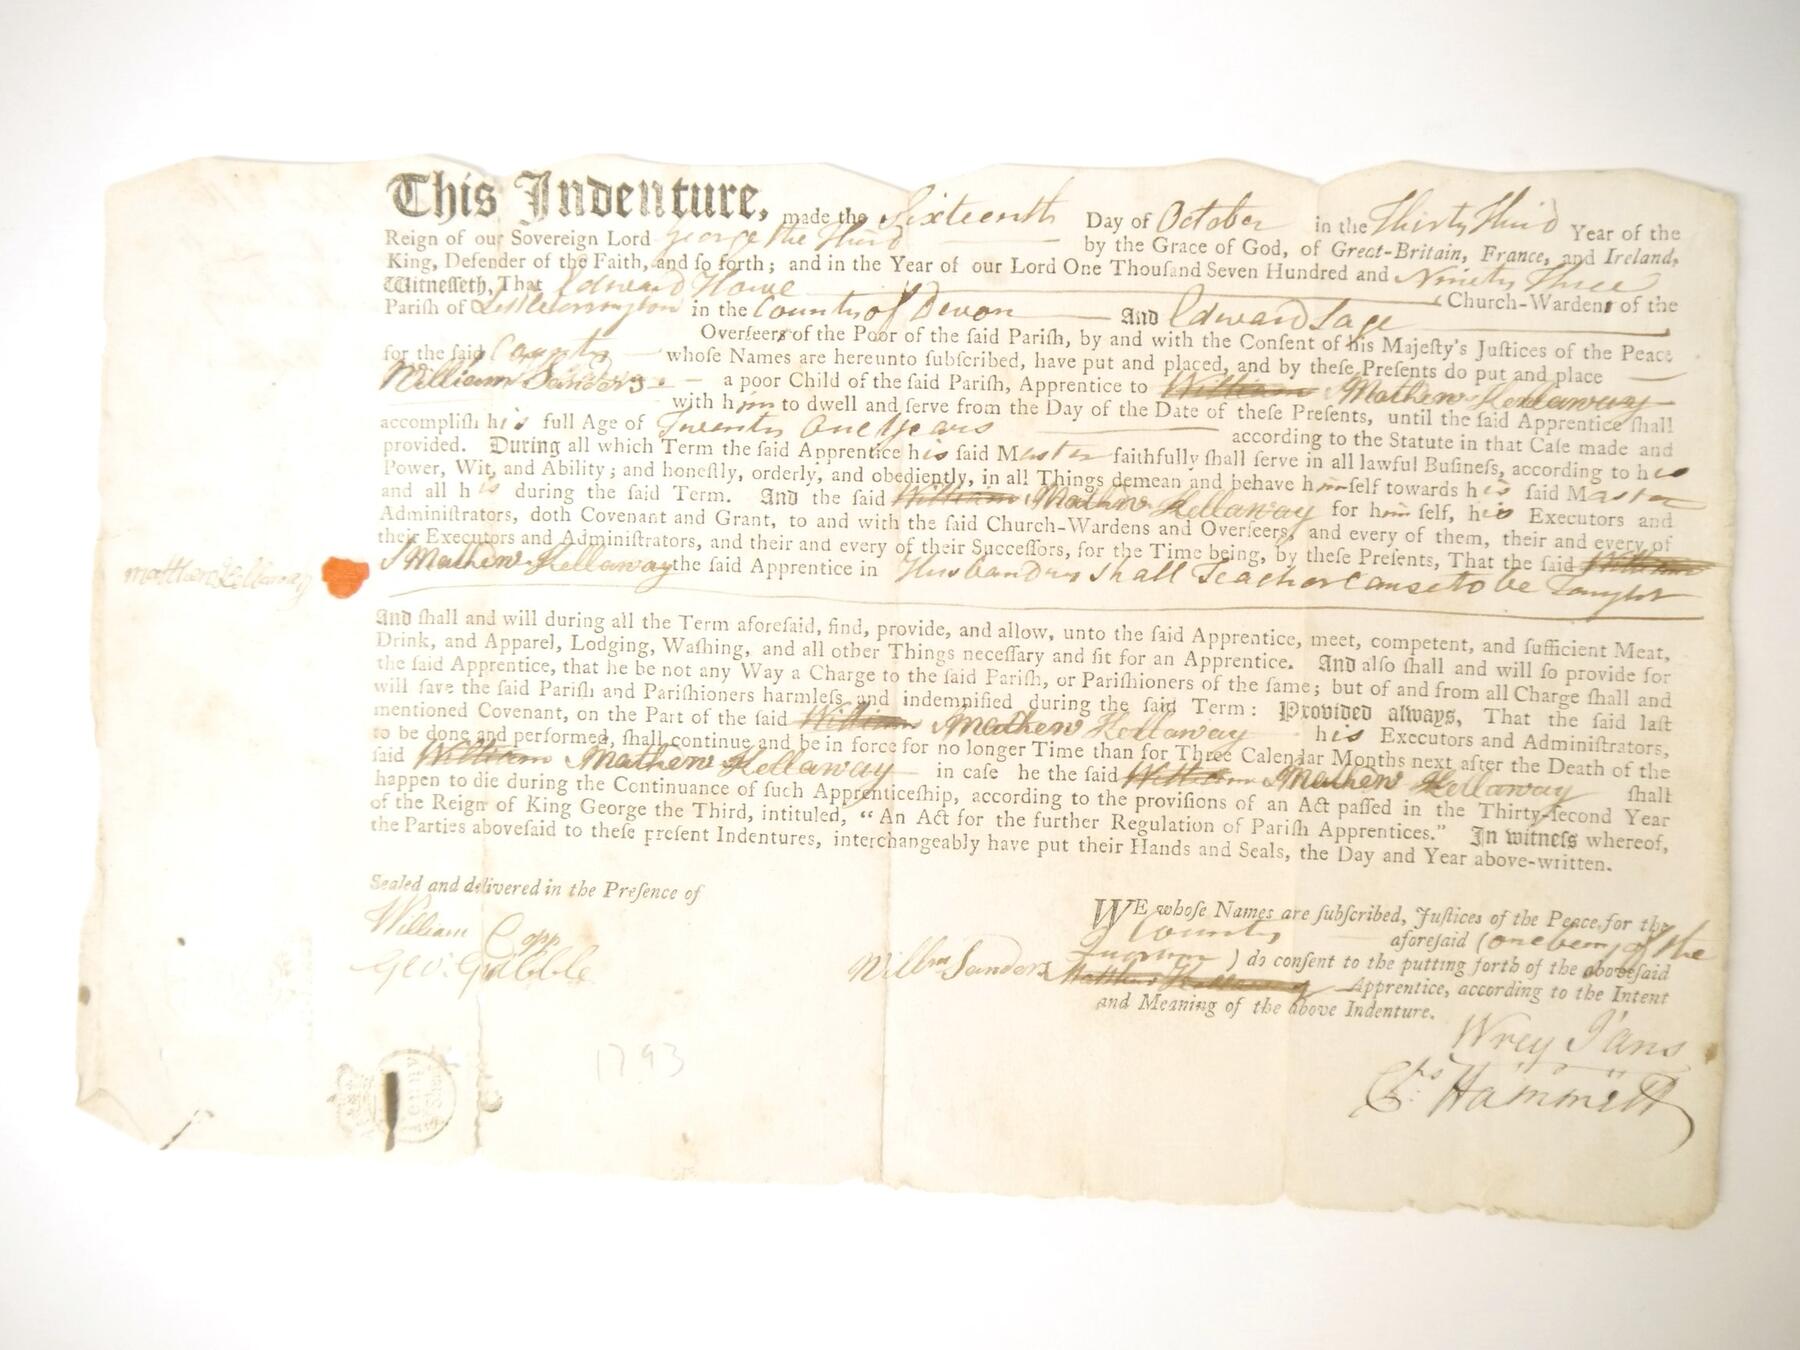 This Indenture, made the Sixteenth Day of October in the Thirty Third Year of the
Reign of our Sovereign Lord George the Third by the Grace of God, of Great-Britain, France, and Ireland,
King, Defender of the Faith, and ſo forth; and in the Year of our Lord One Thouſand Seven Hundred and Ninety Three
Witneſſeth, That Edward Howe Church-Wardens of the
Parish of in the County of Devon And Edward Sage
Overſeers of the Poor of the ſaid Pariſh, by and with the Conſent of his Majeſty's Juſtices of the Peace
for the ſaid County whoſe Names are hereunto ſubſcribed, have put and placed, and by theſe Preſents do put and place
William Sanders a poor Child of the ſaid Pariſh, Apprentice to William Mathew Kellaway
with him to dwell and ſerve from the Day of the Date of theſe Preſents, until the ſaid Apprentice ſhall
accompliſh his full Age of Twenty One Years according to the Statute in that Caſe made and
provided. During all which Term the ſaid Apprentice his ſaid Master faithfully ſhall ſerve in all lawful Buſineſs, according to his
Power, Wit, and Ability; and honeſtly, orderly, and obediently, in all Things demean and behave himſelf towards his ſaid Master
and all his during the ſaid Term. And the ſaid William Mathew Kellaway for himſelf, his Executors and
Adminiſtrators, doth Covenant and Grant, to and with the ſaid Church-Wardens and Overſeers, and every of them, their and every of
their Executors and Adminiſtrators, and their and every of their Succeſſors, for the Time being, by theſe Preſents, That the ſaid William
Mathew Kellaway the ſaid Apprentice in Husbandry shall Teach or Cause to be Taught
matthew Kellaway
And ſhall and will during all the Term aforeſaid, find, provide, and allow, unto the ſaid Apprentice, meet, competent, and ſufficient Meat,
Drink, and Apparel, Lodging, Waſhing, and all other Things neceſſary and fit for an Apprentice. And alſo ſhall and will ſo provide for
the ſaid Apprentice, that he be not any Way a Charge to the ſaid Pariſh, or Pariſhioners of the ſame; but of and from all Charge ſhall and
will ſave the ſaid Pariſh and Pariſhioners harmleſs and indemnified during the ſaid Term: Provided always, That the ſaid laſt
mentioned Covenant, on the Part of the ſaid William Mathew Kellaway his Executors and Adminiſtrators,
to be done and performed, ſhall continue and be in force for no longer Time than for Three Calendar Months next after the Death of the
ſaid William Mathew Kellaway in caſe he the ſaid William Mathew Kellaway ſhall
happen to die during the Continuance of ſuch Apprenticeſhip, according to the proviſions of an Act paſſed in the Thirty-ſecond Year
of the Reign of King George the Third, intituled, "An Act for the further Regulation of Pariſh Apprentices." In witneſs whereof,
the Parties aboveſaid to theſe preſent Indentures, interchangeably have put their Hands and Seals, the Day and Year above-written.
Sealed and delivered in the Preſence of
William Copp
Geo: Gribble
WE whoſe Names are ſubſcribed, Juſtices of the Peace for the
County aforeſaid (one being of the
Quorum) do conſent to the putting forth of the aboveſaid
Willm Sanders Matthew Kellaway Apprentice, according to the Intent
and Meaning of the above Indenture.
Wrey I'ans
Chs Hammett
1793